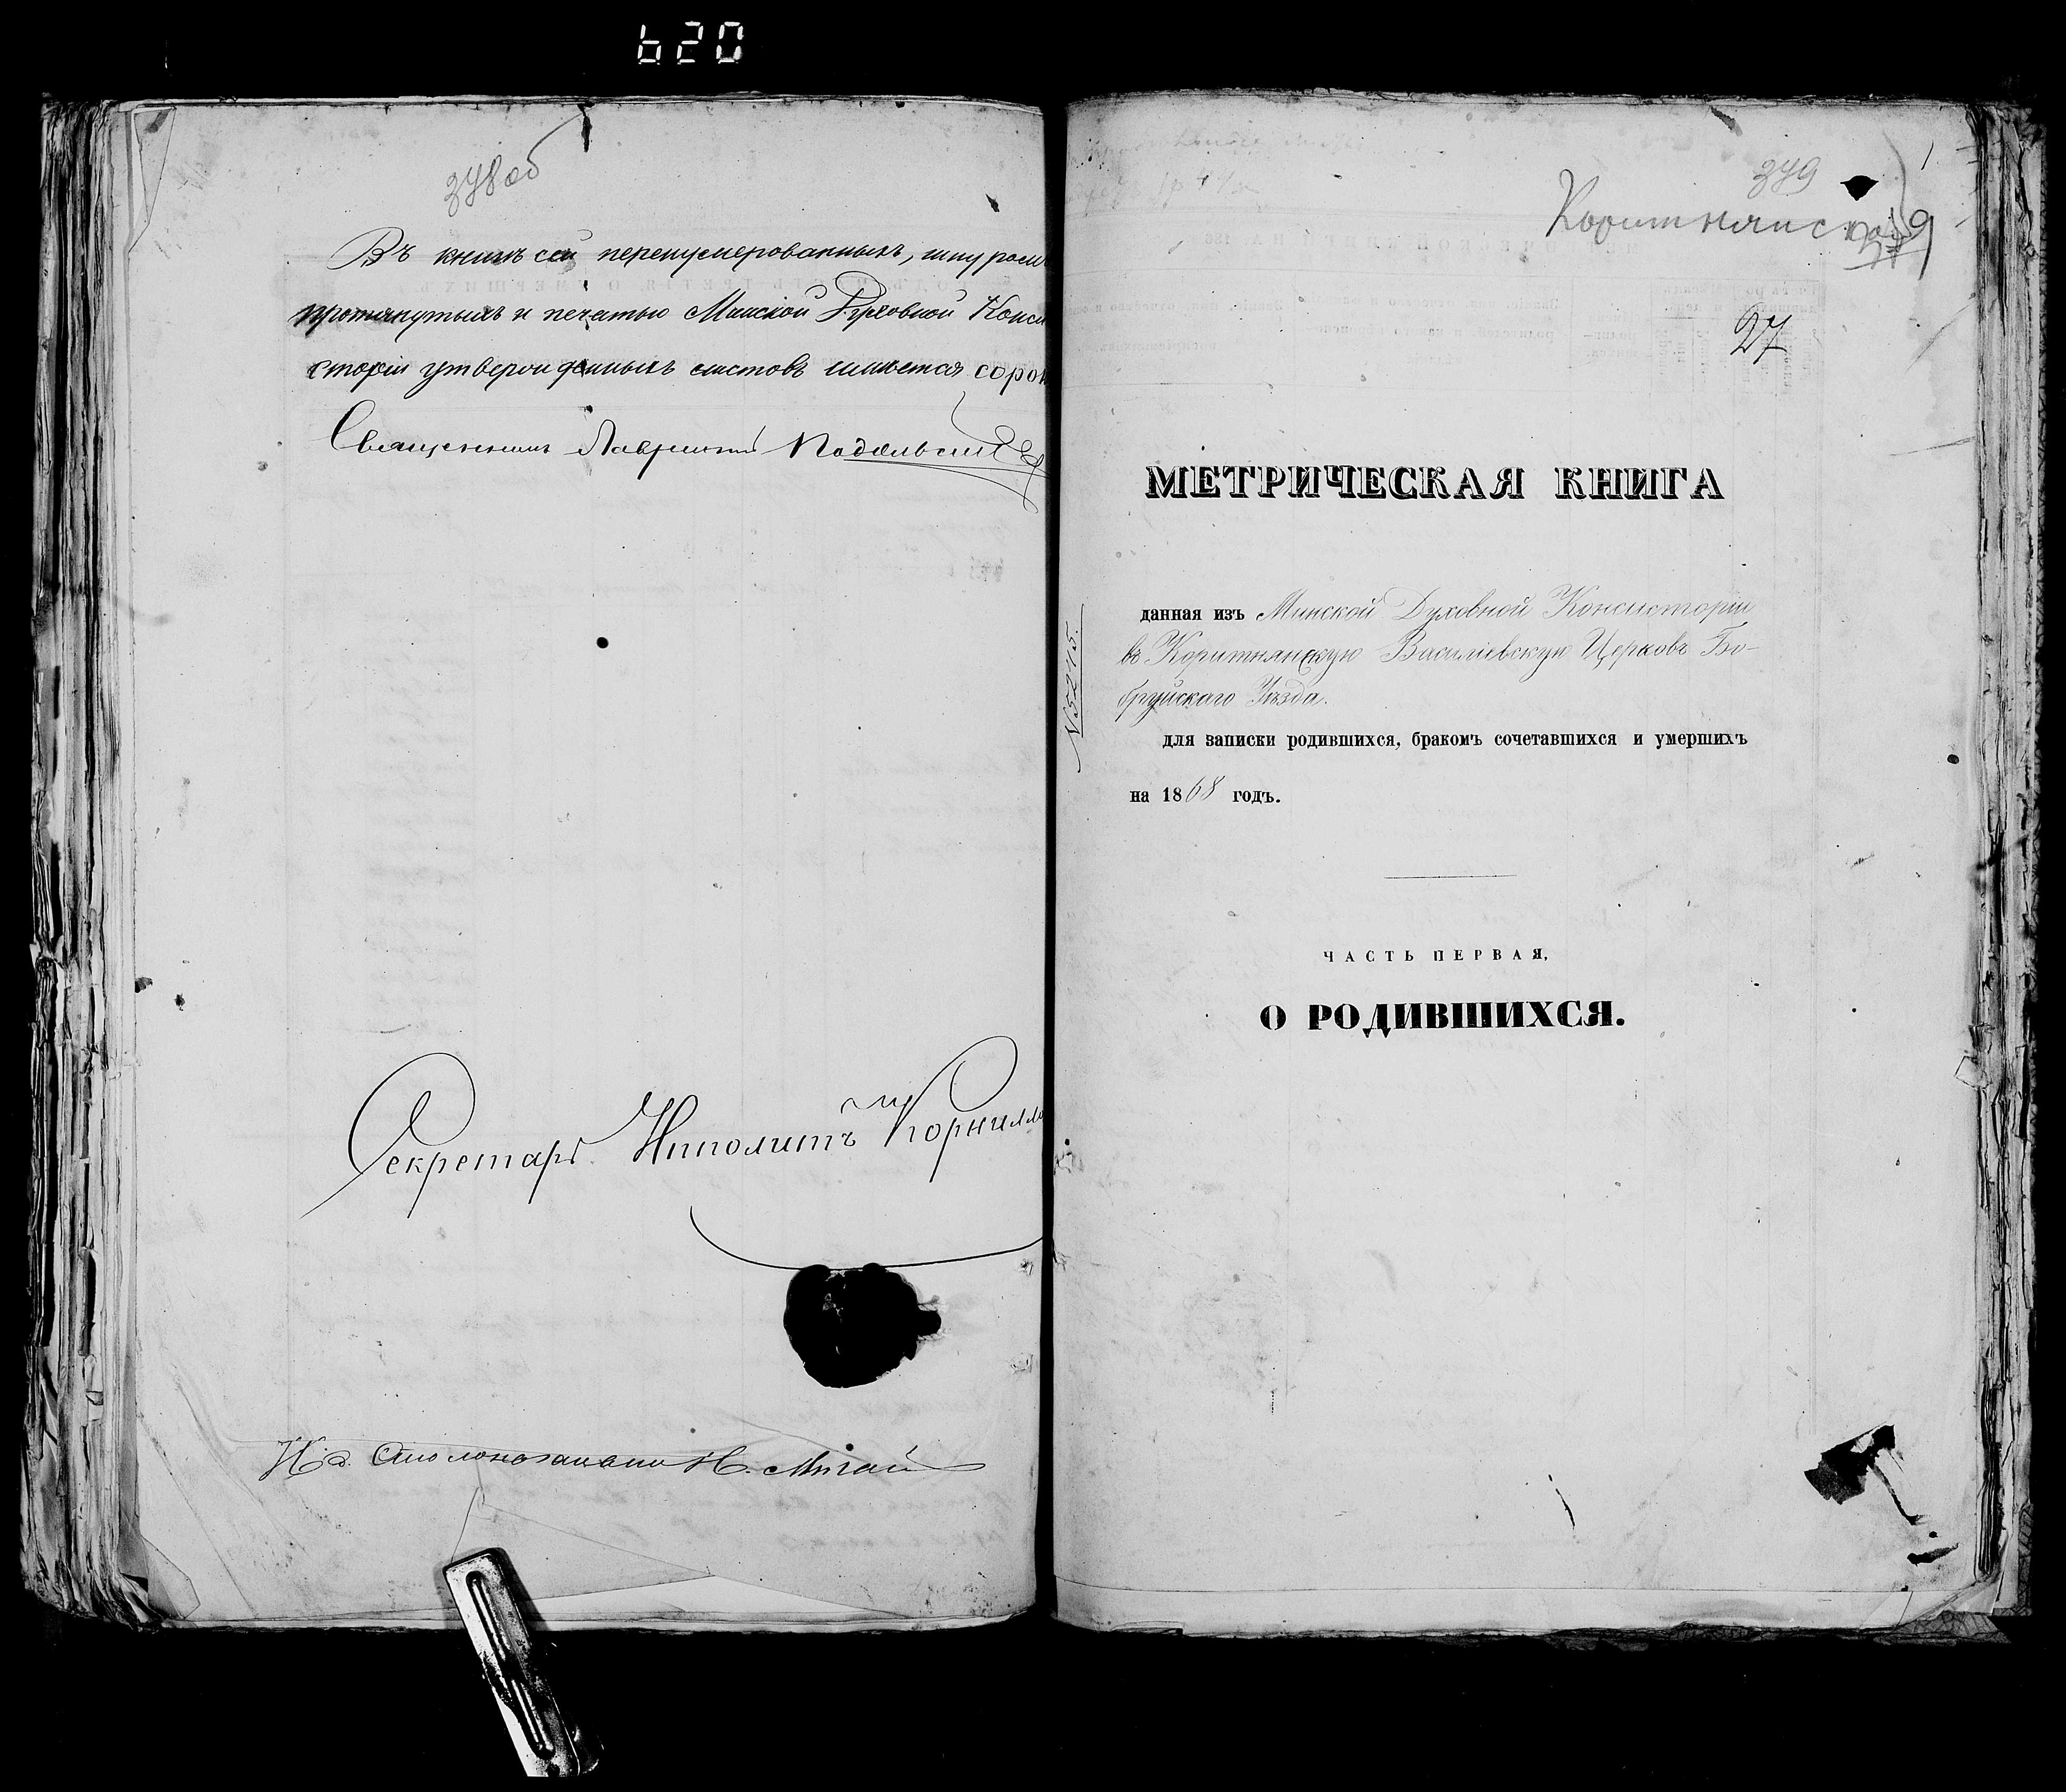 620
378 об
Въ книгѣ сей перенумерованныхъ, шнуромъ
протянутыхъ и печатью Минской Духовной Конси
сторіи утвержденныхъ листовъ имѣется сорок
Священникъ Лаврентій Подольскій
Секретарь Ипполитъ Корнилло
И. д. Столоначальника Н. Мигай
1.
379
Коритнянс
27
МЕТРИЧЕСКАЯ КНИГА
данная изъ Минской Духовной Консисторіи
въ Коритнянскую Василіевскую Церковь Бо-
бруйскаго Уѣзда.
для записки родившихся, бракомъ сочетавшихся и умершихъ
на 1868 годъ.
№5245.
ЧАСТЬ ПЕРВАЯ,
О РОДИВШИХСЯ.